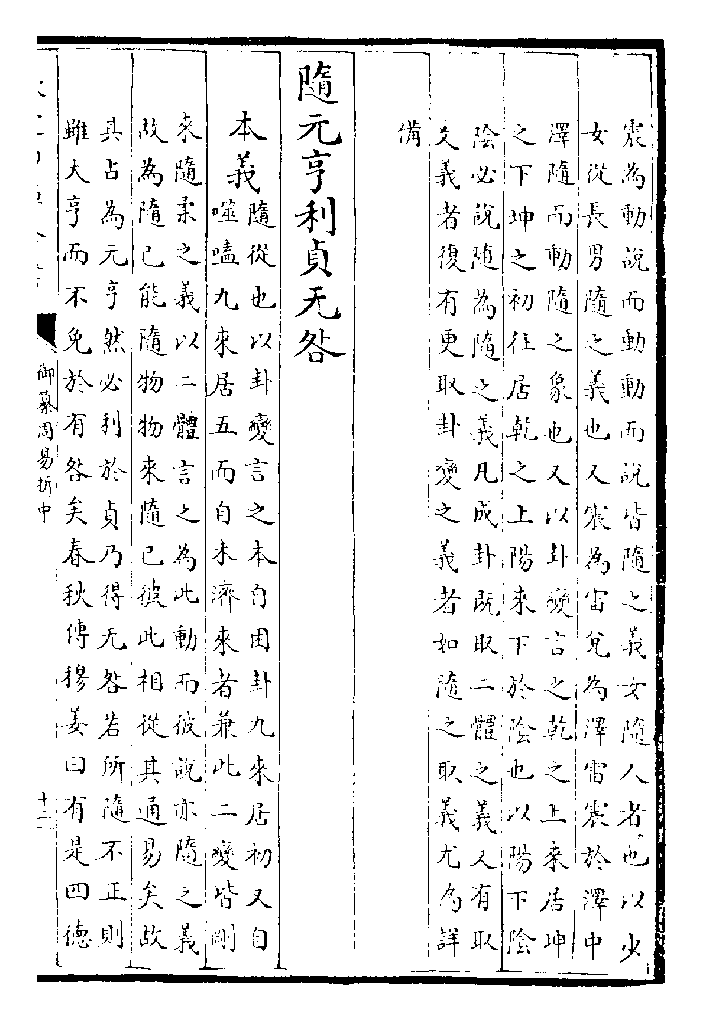 震為動說而動動而說皆隨之義女隨人者也以少
女從長男隨之義也又震為雷兌為澤雷震於澤中
澤隨而動隨之象也又以卦變言之乾之上來居坤
之下坤之初往居乾之上陽來下於陰也以陽下陰
陰必說隨為隨之義凡成卦既取二體之義又有取
爻義者復有更取卦變之義者如隨之取義尤為詳
備
隨元亨利貞无咎
本義
隨從也以卦變言之本自困卦九來居初又自
噬嗑九來居五而自未濟來者兼此二變皆剛
來隨柔之義以二體言之為此動而彼說亦隨之義
故為隨已能隨物物來隨已彼此相從其通易矣故
其占為元亨然必利於貞乃得无咎若所隨不正則
雖大亨而不免於有咎矣春秋傳穆姜曰有是四德
御纂周易折中